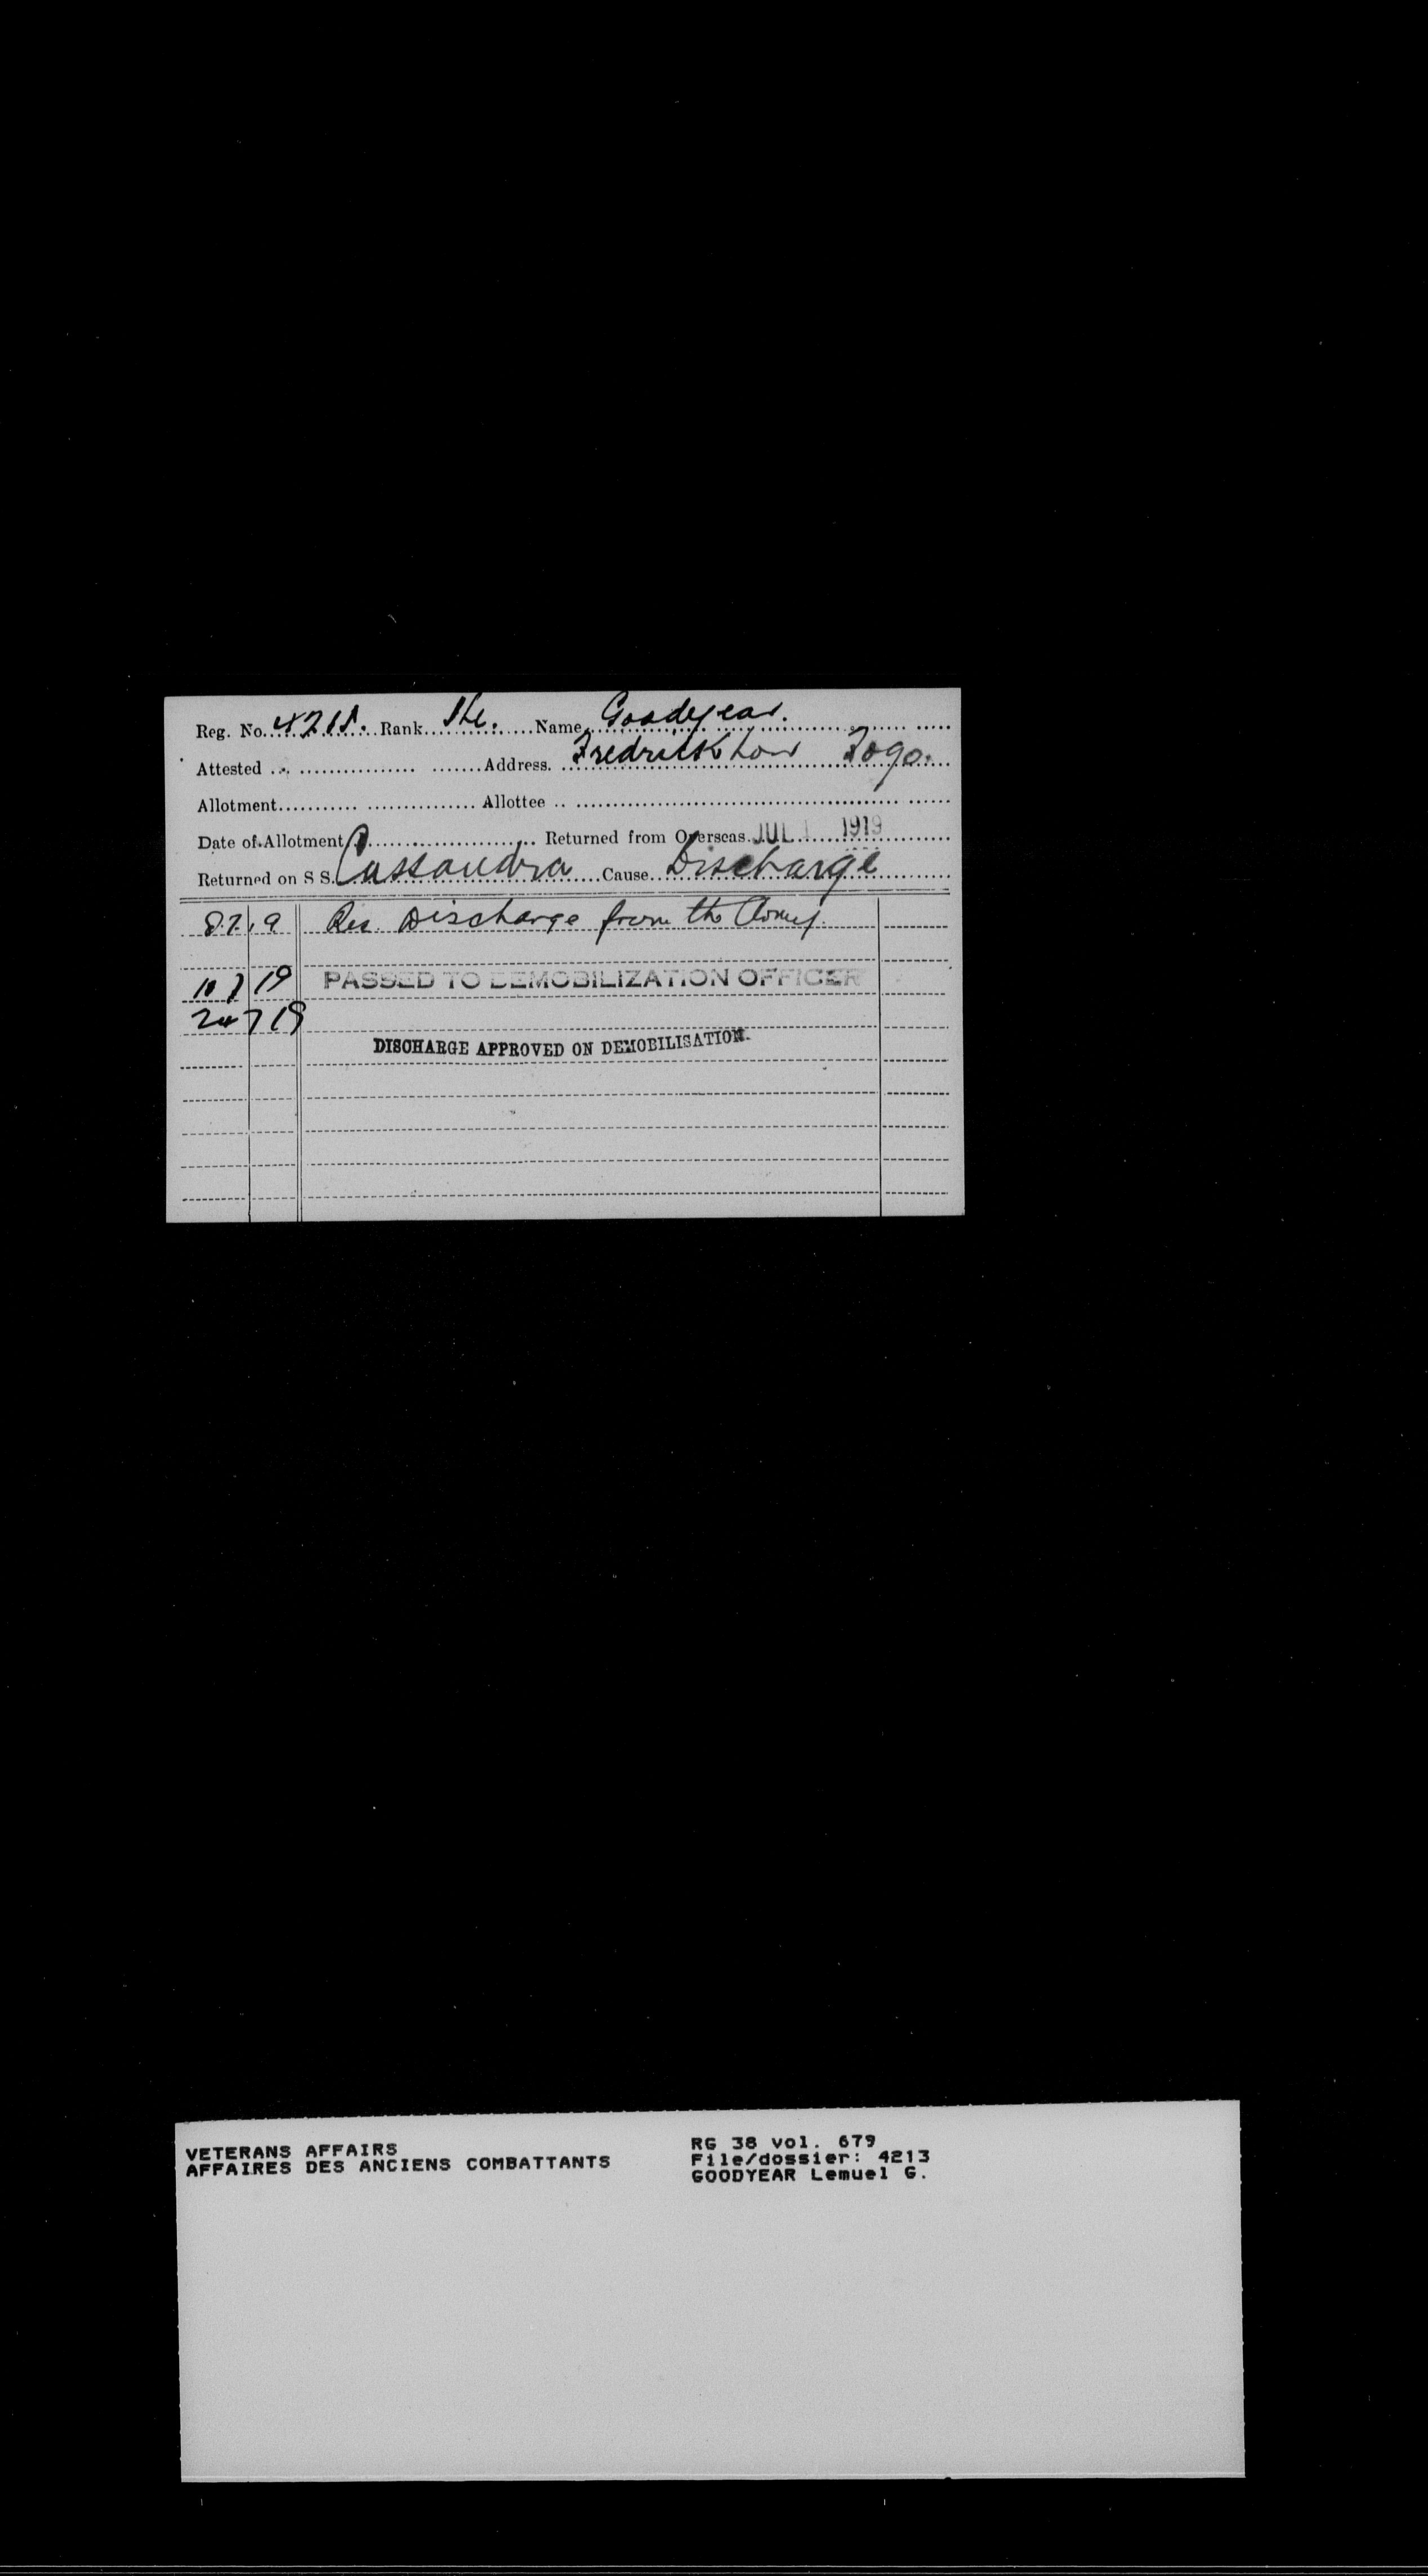 Reg. No. 4215. Rank Pte. Name Goodyear.
Attested Address. Fredrickton Fogo.
Allotment Allottee
Date of Allotment Returned from Overseas JUL 1 1919
Returned on S S. Cassandra Cause Discharge
8 7 19 Discharge from the Army.
10 7 19 PASSED TO DEMOBILIZATION OFFICER
24 7 19
DISCHARGE APPROVED ON DEMOBILISATION.
VETERANS AFFAIRS
AFFAIRES DES ANCIENS COMBATTANTS
RG 38 vol. 679
File/dossier: 4213
GOODYEAR Lemuel G.